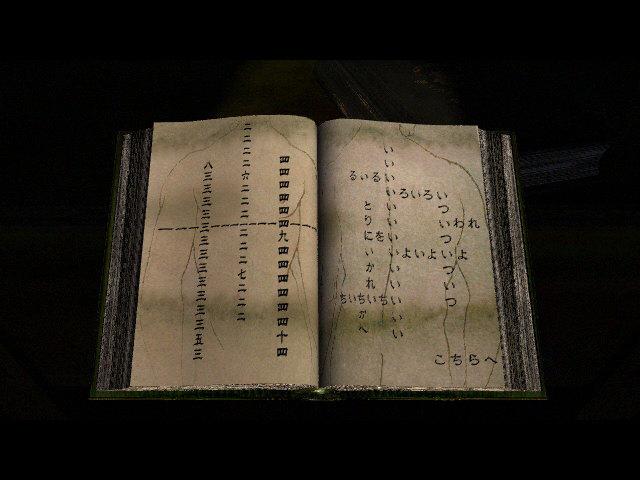 われ
いついついついつ
ろいろい
よいよいよ
いいいいいいいいいいいいいいい
るいる
を
とりにいかれ
ちいちいち
かへ
こちらへ
四四四四四四九四四四四四四四十四
二二二二六二二二二二二二七二二二
八三三三三三三三三三三三三三五三